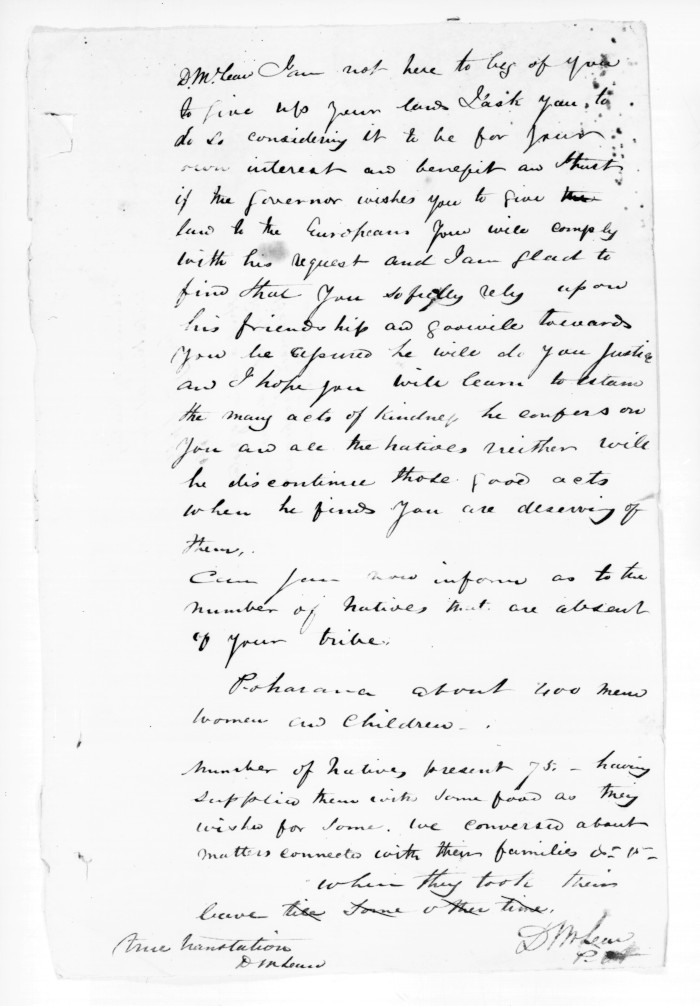 D. McLean I am not here to beg of you
to give up your lands I ask you to
do so considering it to be for your
own interest and benefit and trust
if the governor wishes you to give the
land to the Europeans you will comply
with his request and I am glad to
find that you so fully rely upon
his friendship and goowile towards
you be assured he will do you justice
and I hope you will learn to
the many acts of kindness he confers on
you and all the natives neither will
he discontinue those good acts
when he finds you are deserving of
them.
Can you now inform as to the
number of natives that are absent
of your tribe.
Poharama about 400 men
women and children.
Number of natives present 75. - having
supplied them with some food as they
wished for some. We conversed about
matters connected with their families &c &c
when they took their
leave till some other time.
D McLean
true translation
D McLean